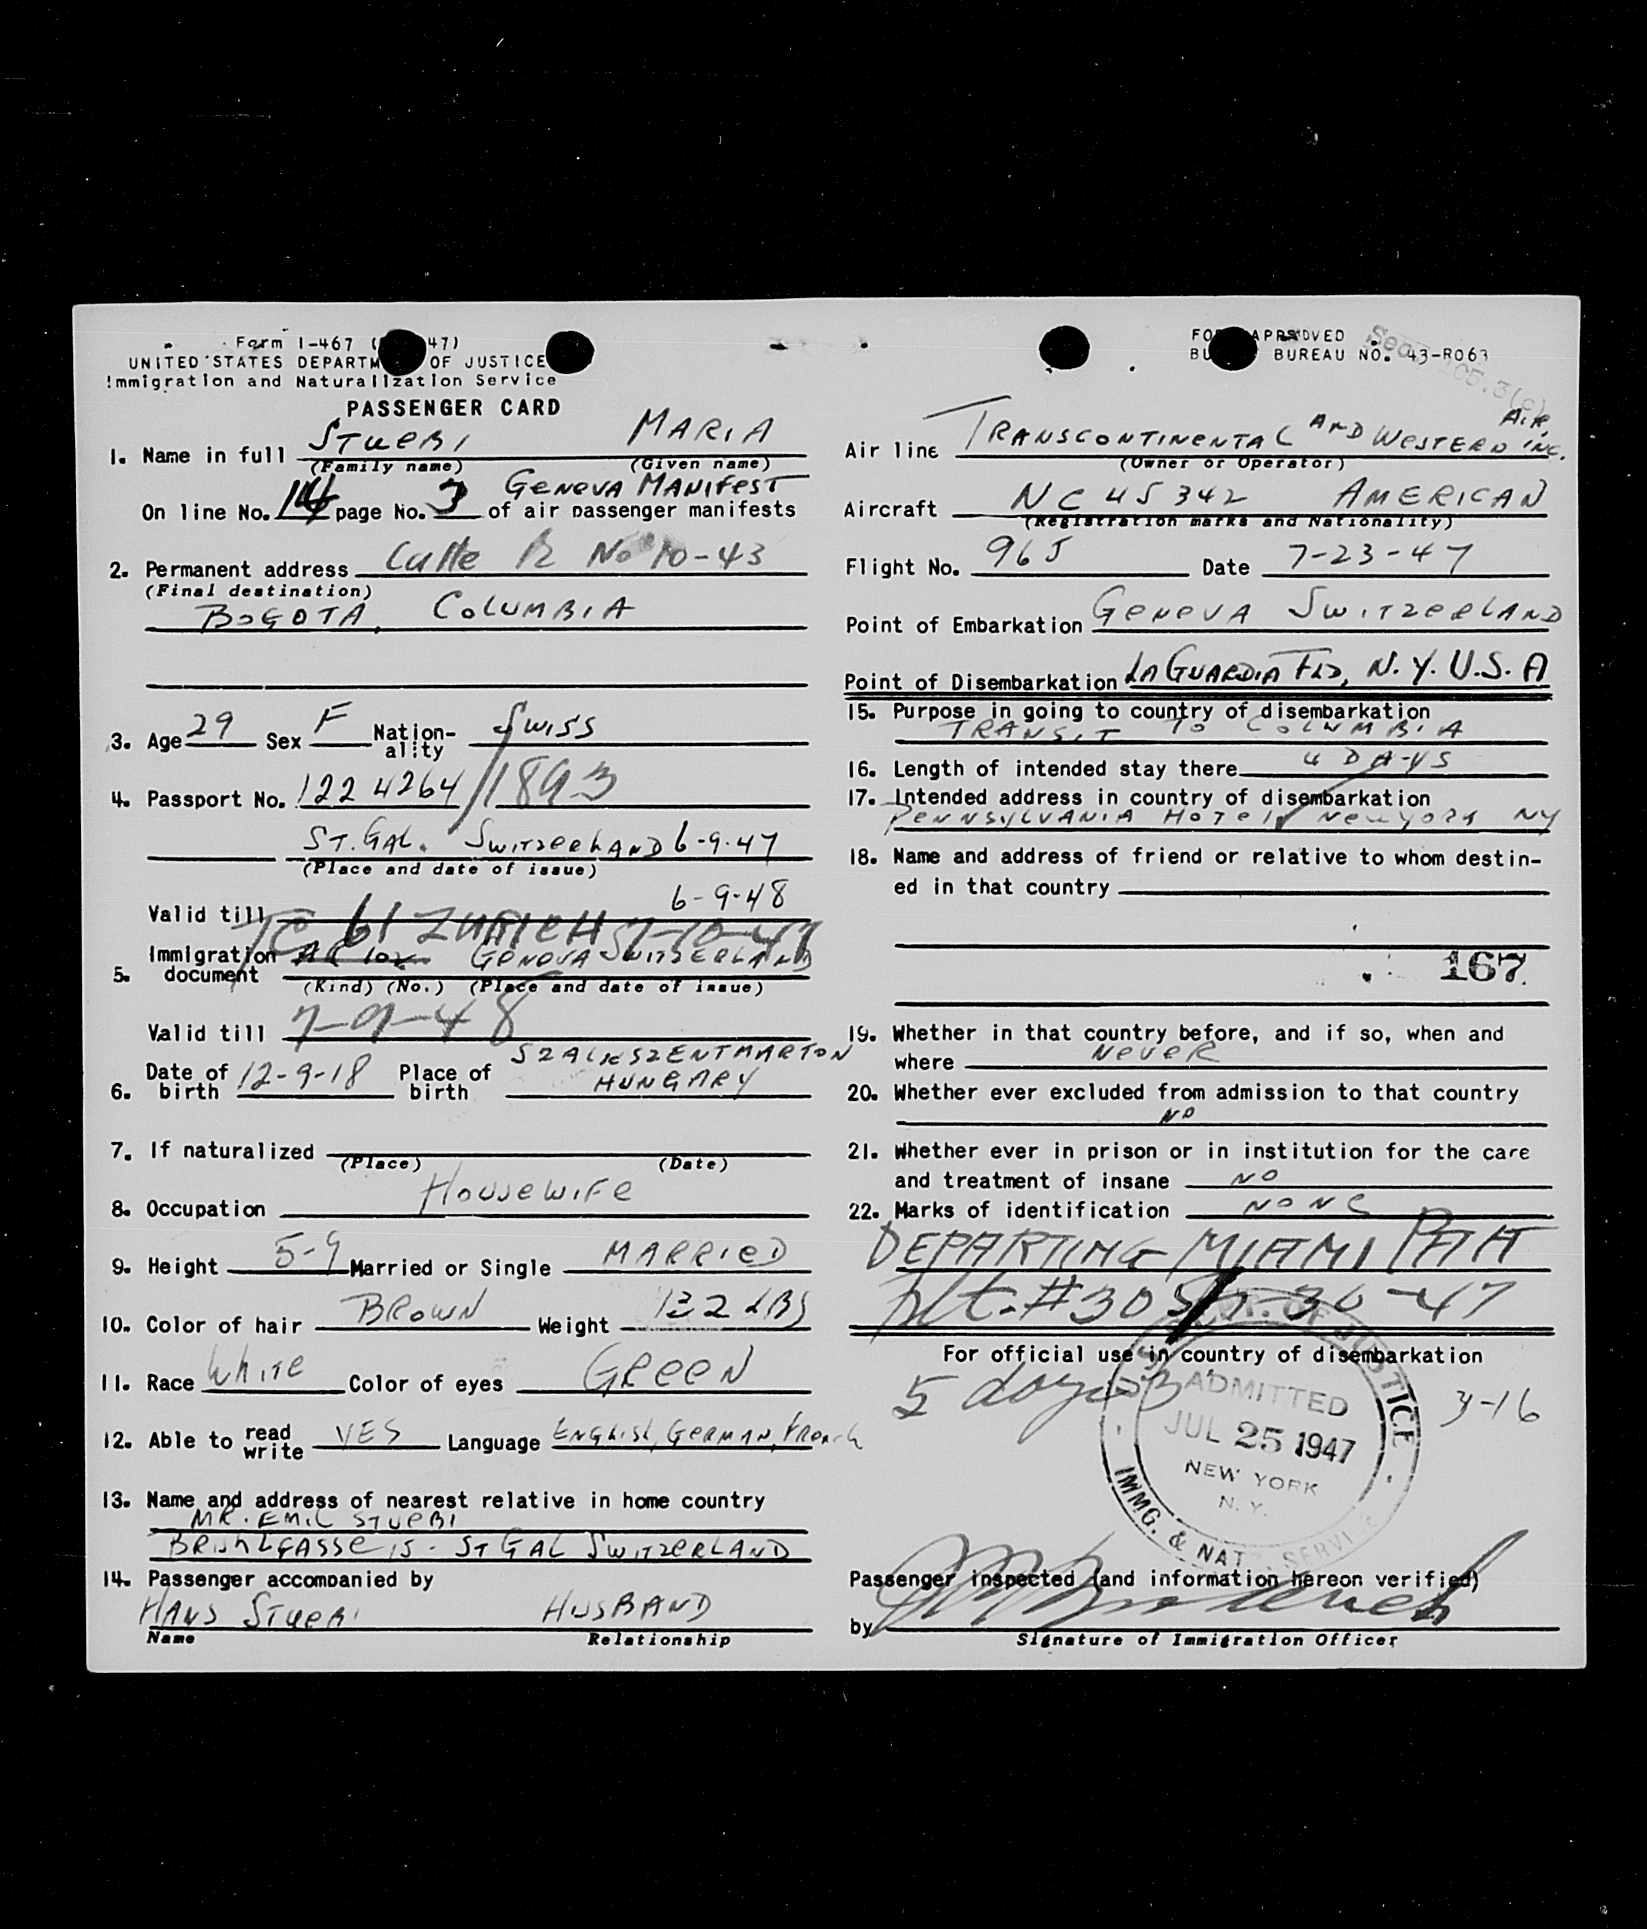 Form I-467 ( 47)
UNITED STATES DEPARTM OF JUSTICE
Immigration and Naturalization Service
PASSENGER CARD
1. Name in full STUEBI MARIA
(Family name) (Given name)
GENEVA MANIFEST
On line No. 14 page No. 3 of air passenger manifests
2. Permanent address Calle 12 No 10-43
(Final destination)
BOGOTA, COLUMBIA
3. Age 29 Sex F Nation-ality SWISS
4. Passport No. 1224264/1893
ST. GAL. SWITZERLAND 6-9-47
(Place and date of issue)
6-9-48
Valid till
TC 61 ZURICH 7-10-47
Immigration
5. document GENEVA SWITZERLAND
(Kind) (No.) (Place and date of issue)
Valid till 7-9-48
6. Date of birth 12-9-18 Place of birth SZALKSZENTMARTON
HUNGARY
7. If naturalized
(Place) (Date)
8. Occupation HOUSEWIFE
9. Height 5-9 Married or Single MARRIED
10. Color of hair BROWN Weight 132 LBS
11. Race WHITE Color of eyes GREEN
12. Able to read write YES Language ENGLISH, GERMAN, FRENCH
13. Name and address of nearest relative in home country
MR. EMIL STUEBI
15 - ST GAL SWITZERLAND
14. Passenger accompanied by
HANS STUEBI HUSBAND
Name Relationship
FO APPROVED
BU BUREAU NO. 43-R063
Sec. 105.3(c)
AIR,
Air line TRANSCONTINENTAL AND WESTERN INC.
(Owner or Operator)
Aircraft NC 45342 AMERICAN
(Registration marks and Nationality)
Flight No. 965 Date 7-23-47
Point of Embarkation GENEVA SWITZERLAND
Point of Disembarkation LA GUARDIA FLD, N.Y. U.S.A
15. Purpose in going to country of disembarkation
TRANSIT TO COLUMBIA
16. Length of intended stay there 4 DAYS
17. Intended address in country of disembarkation
PENNSYLVANIA HOTEL NEW YORK NY
18. Name and address of friend or relative to whom destin-
ed in that country
167
19. Whether in that country before, and if so, when and
where NEVER
20. Whether ever excluded from admission to that country
NO
21. Whether ever in prison or in institution for the care
and treatment of insane NO
22. Marks of identification NONE
DEPARTING MIAMI PAA
Flt. #305 7-30-47
For official use in country of disembarkation
5 days 3-16
OF JUSTICE
ADMITTED
JUL 25 1947
NEW YORK
N. Y.
IMMG. & NAT. SERVICE
Passenger inspected (and information hereon verified)
by
Signature of Immigration Officer